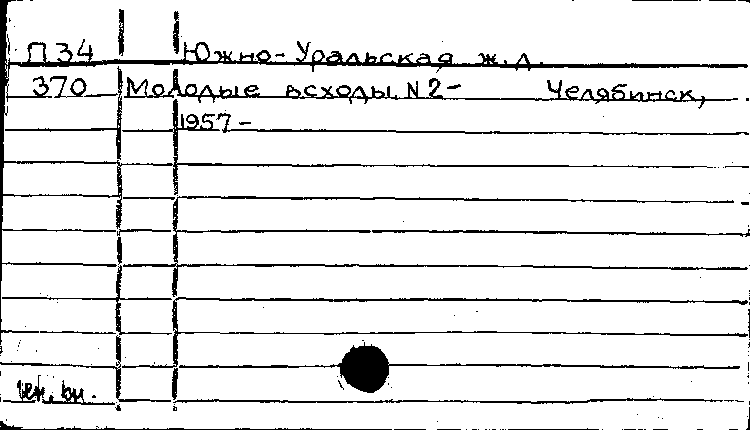 П34 Южно-Уральская ж.д.
370 Молодые всходы. N2- Челябинск,
1957-